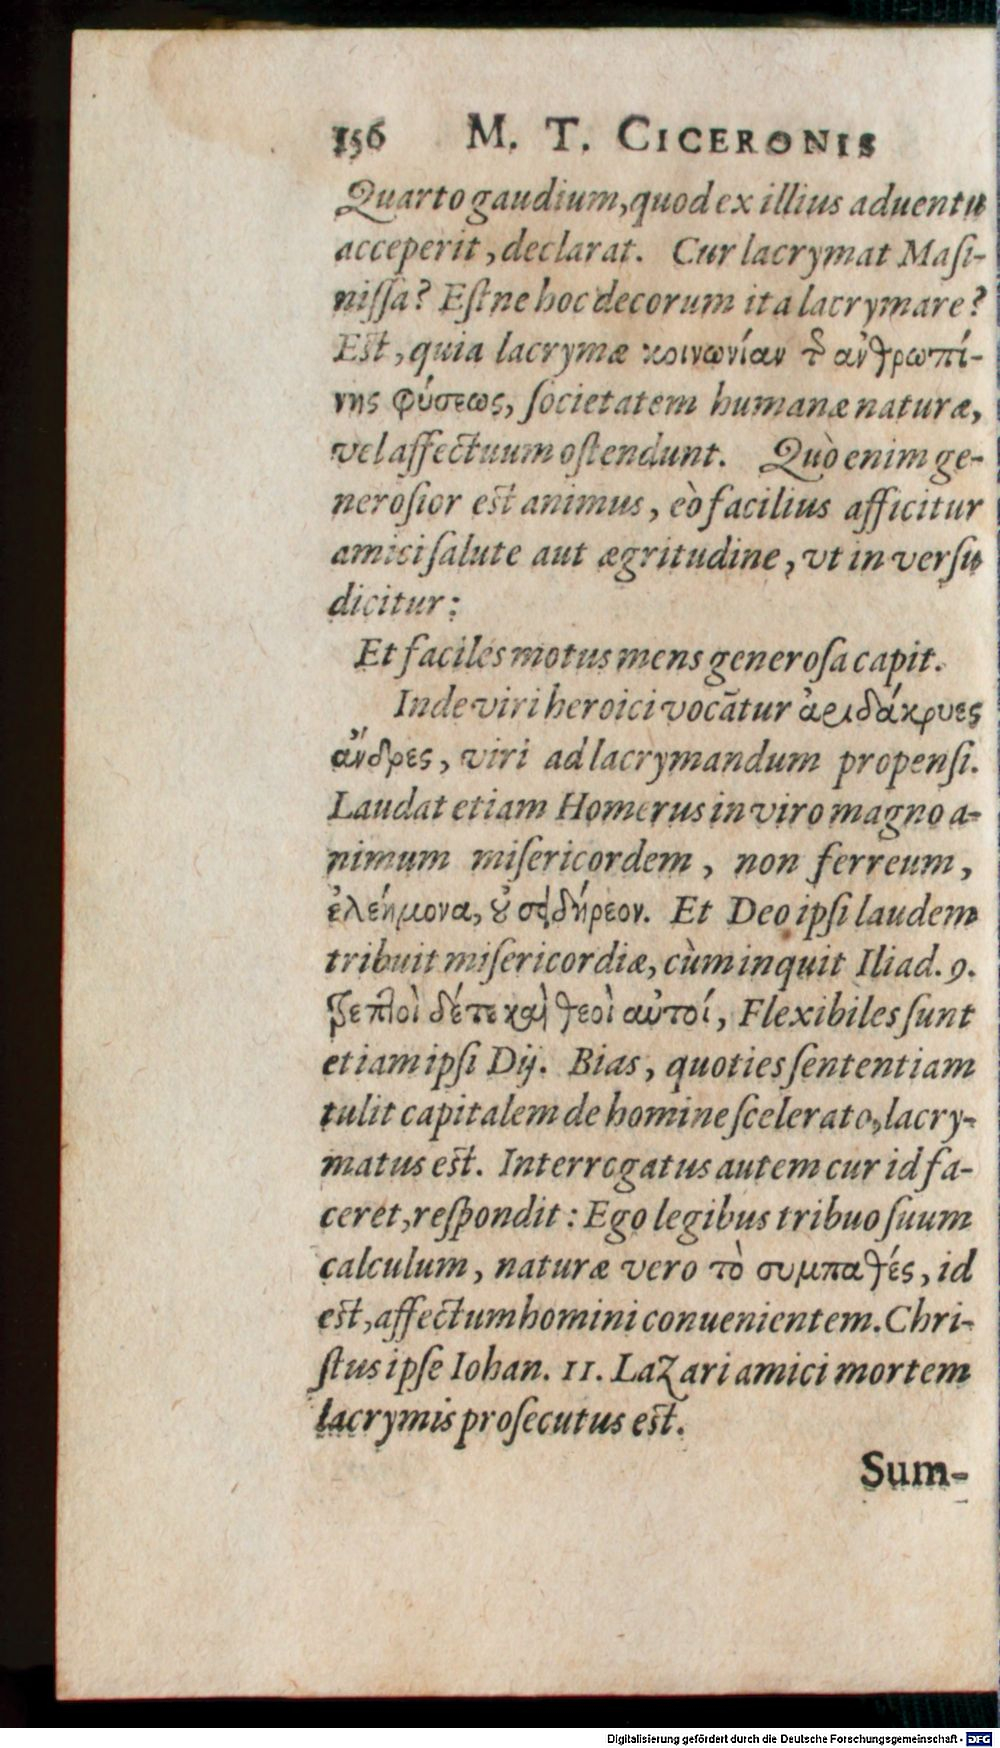 156 M. T. CICERONIS
Quarto gaudium, quod ex illius aduentu
acceperit, declarat. Cur lacrymat Masi-
nissa? Estne hoc decorum ita lacrymare?
Est, quia lacrymæ κοινωνίαν τ῀ ἀνθρωπί-
νης φύσεως, societatem humanæ naturæ,
vel affectuum ostendunt. Quò enim ge-
nerosior est animus, eò facilius afficitur
amici salute aut ægritudine, vt in versu
dicitur:
Et faciles motus mens generosa capit.
Inde viri heroici vocãtur ἀριδάκρυες
ἄνδρες, viri ad lacrymandum propensi.
Laudat etiam Homerus in viro magno a-
nimum misericordem, non ferreum,
ἐλεήμονα, ȣ σιδήρεον. Et Deo ipsi laudem
tribuit misericordiæ, cùm inquit Iliad. 9.
ςρεπλοὶ δέτε καὶ θεοὶ αὐτοί, Flexibiles sunt
etiam ipsi Dij. Bias, quoties sententiam
tulit capitalem de homine scelerato, lacry-
matus est. Interrogatus autem cur id fa-
ceret, respondit: Ego legibus tribuo suum
calculum, naturæ vero τὸ συμπαθές, id
est, affectum homini conuenientem. Chri-
stus ipse Iohan. 11. Lazari amici mortem
lacrymis prosecutus est.
Sum-
Digitalisierung gefördert durch die Deutsche Forschungsgemeinschaft - DFG